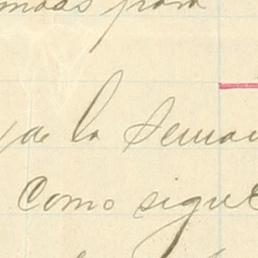 para
de la Seman
Como sigue